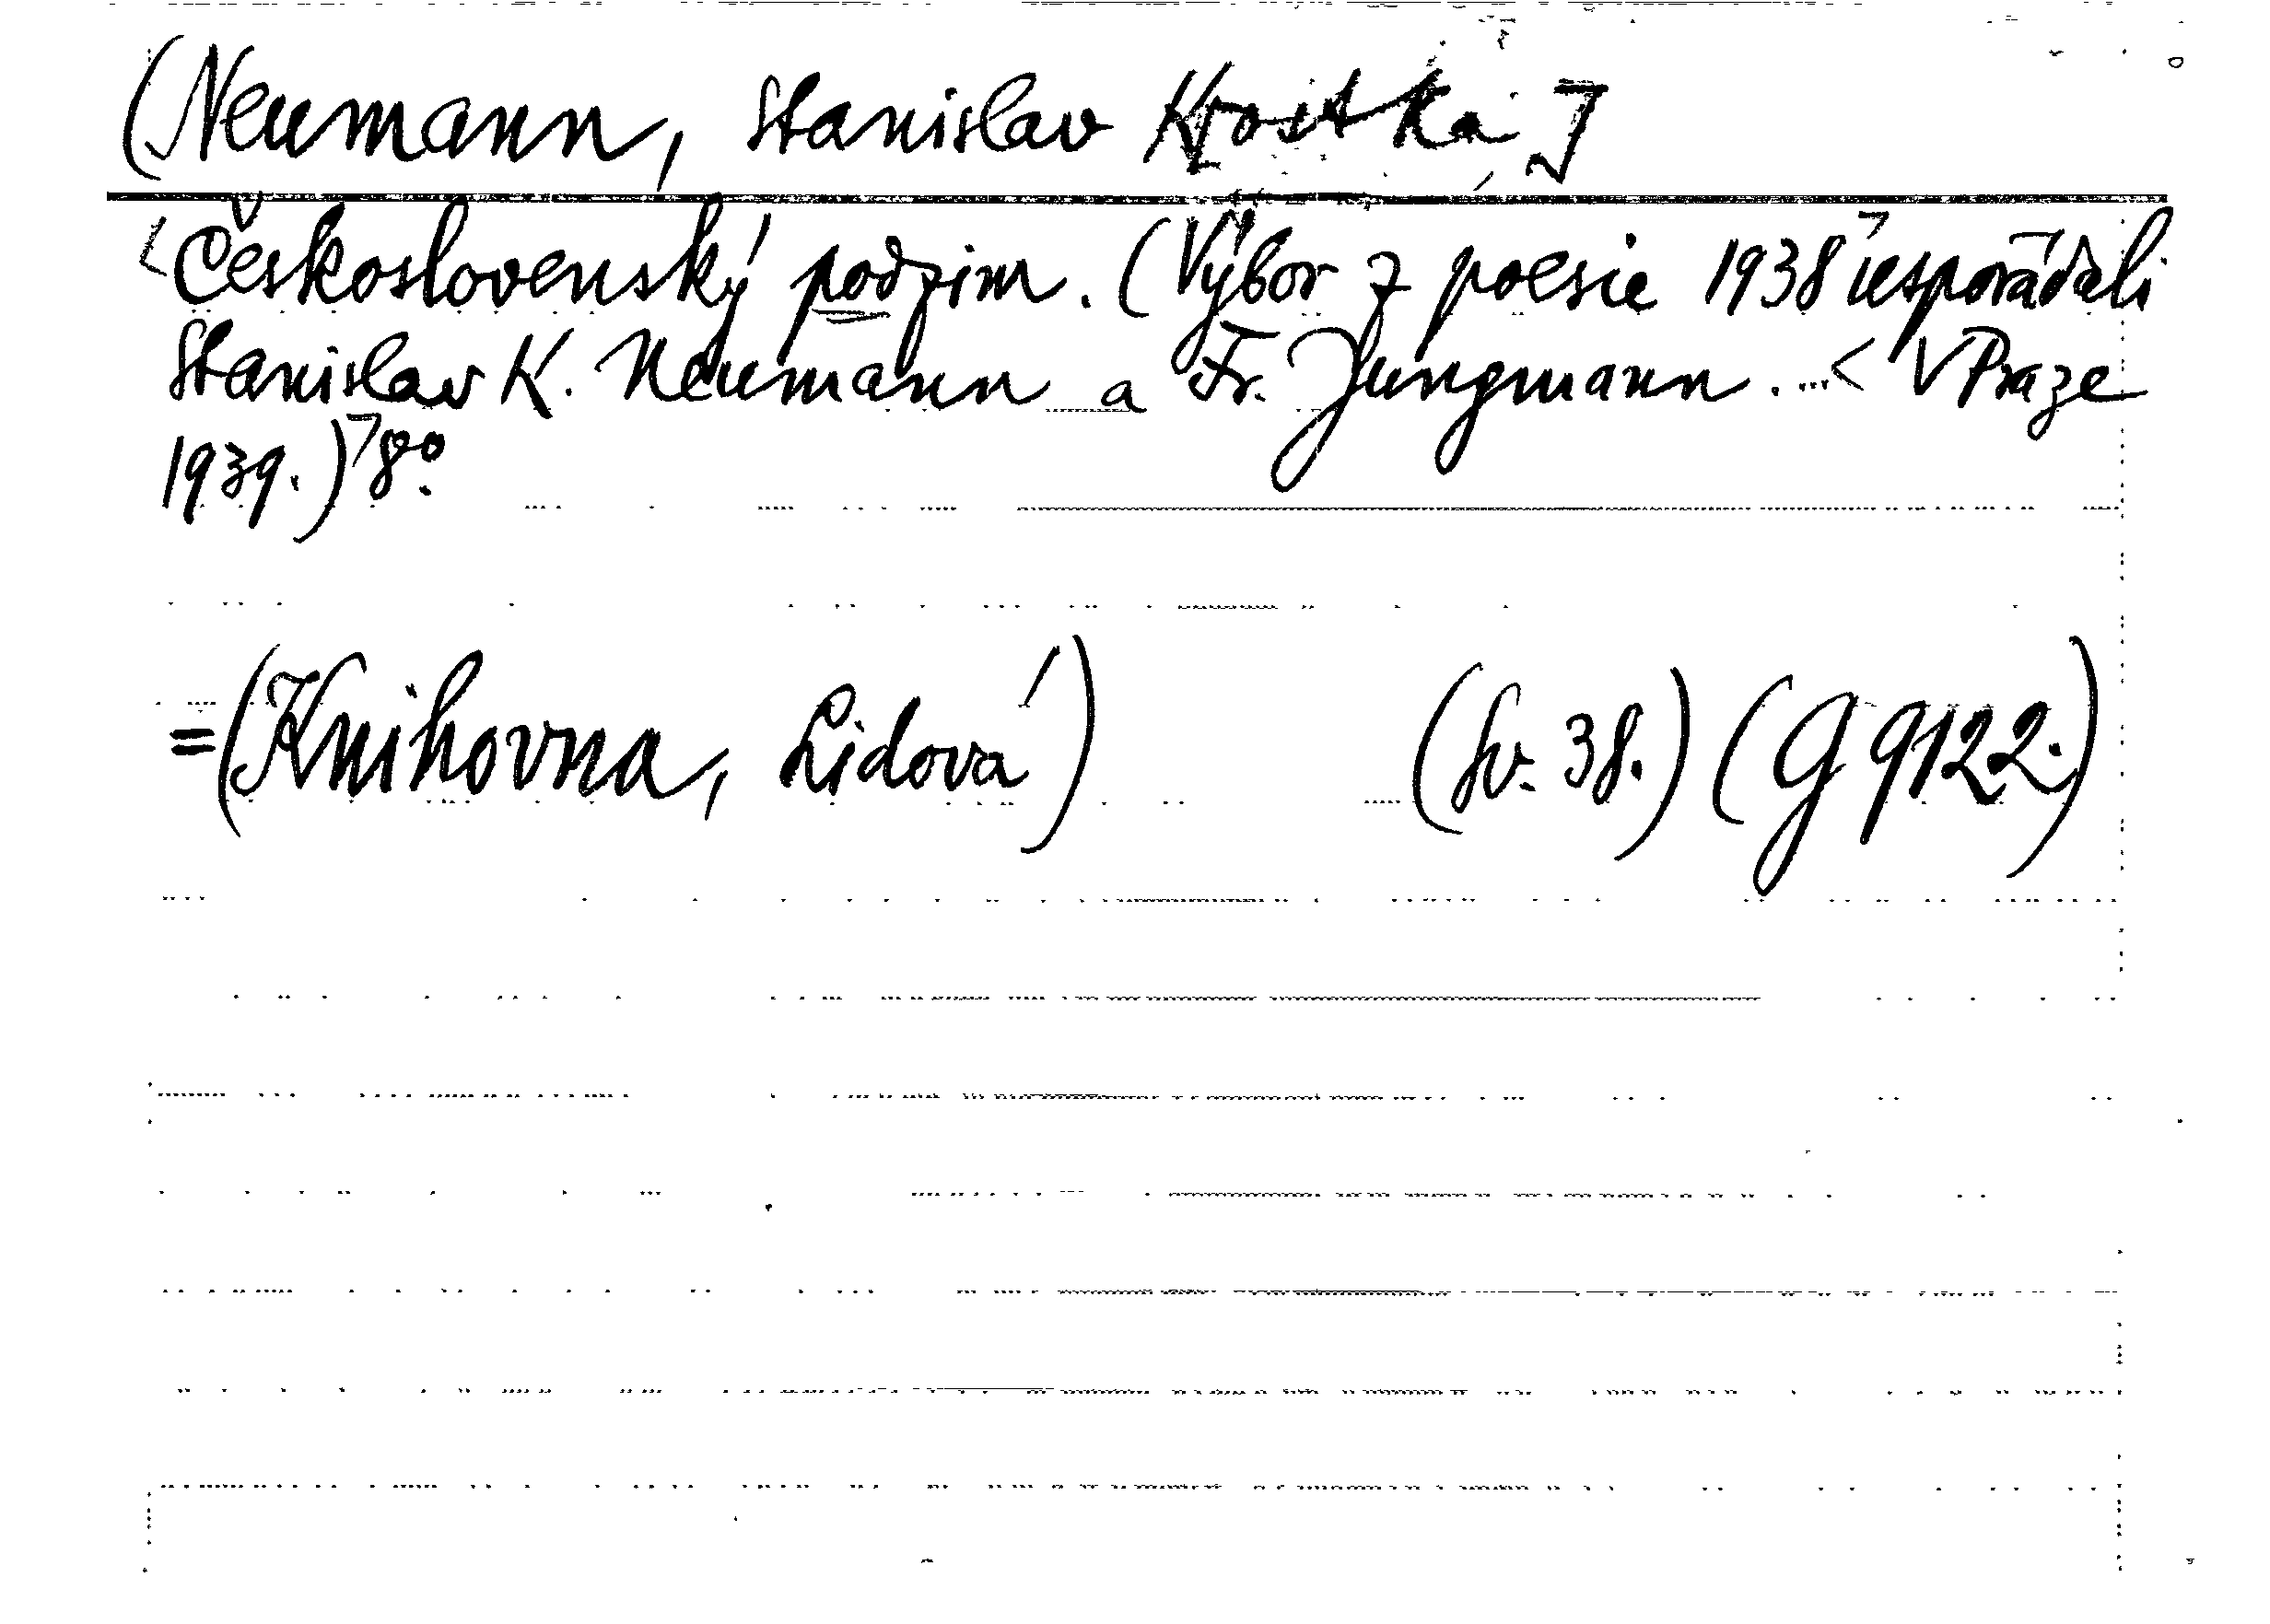 (Neumann, Stanislav Kostka]
<Československý podzim. (Výbor z poesie 1938⁊ uspořádali
Stanislav K. Neumann a Fr. Jungmann. ...< V Praze
1939.)⁊ 8°.
=(Knihovna, Lidová) (Sv. 38.) (G 9122.)